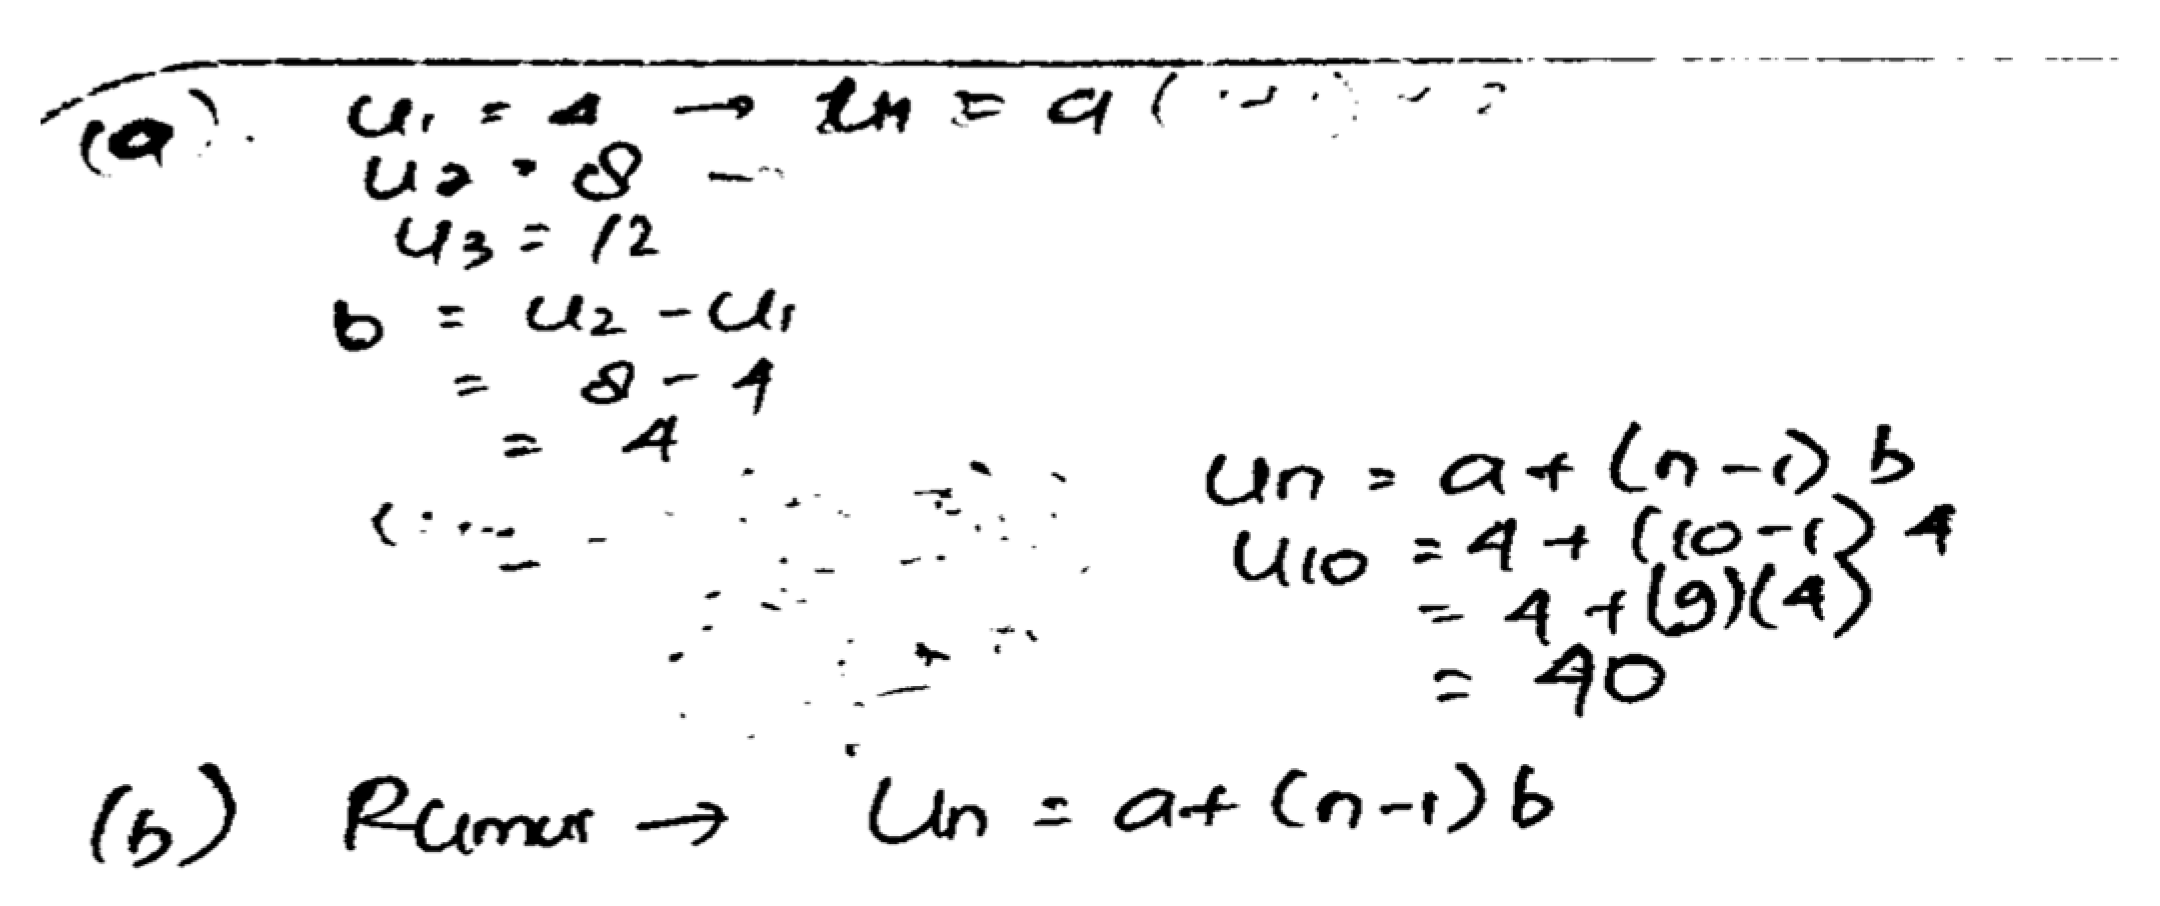 (a). U1 = 4 → Un = a (
U2 = 8
U3 = 12
b = U2 - U1
= 8 - 4
= 4
Un = a + (n-1) b
U10 = 4 + (10-1) 4
= 4 + (9)(4)
= 40
(b) Rumus → Un = a + (n-1) b